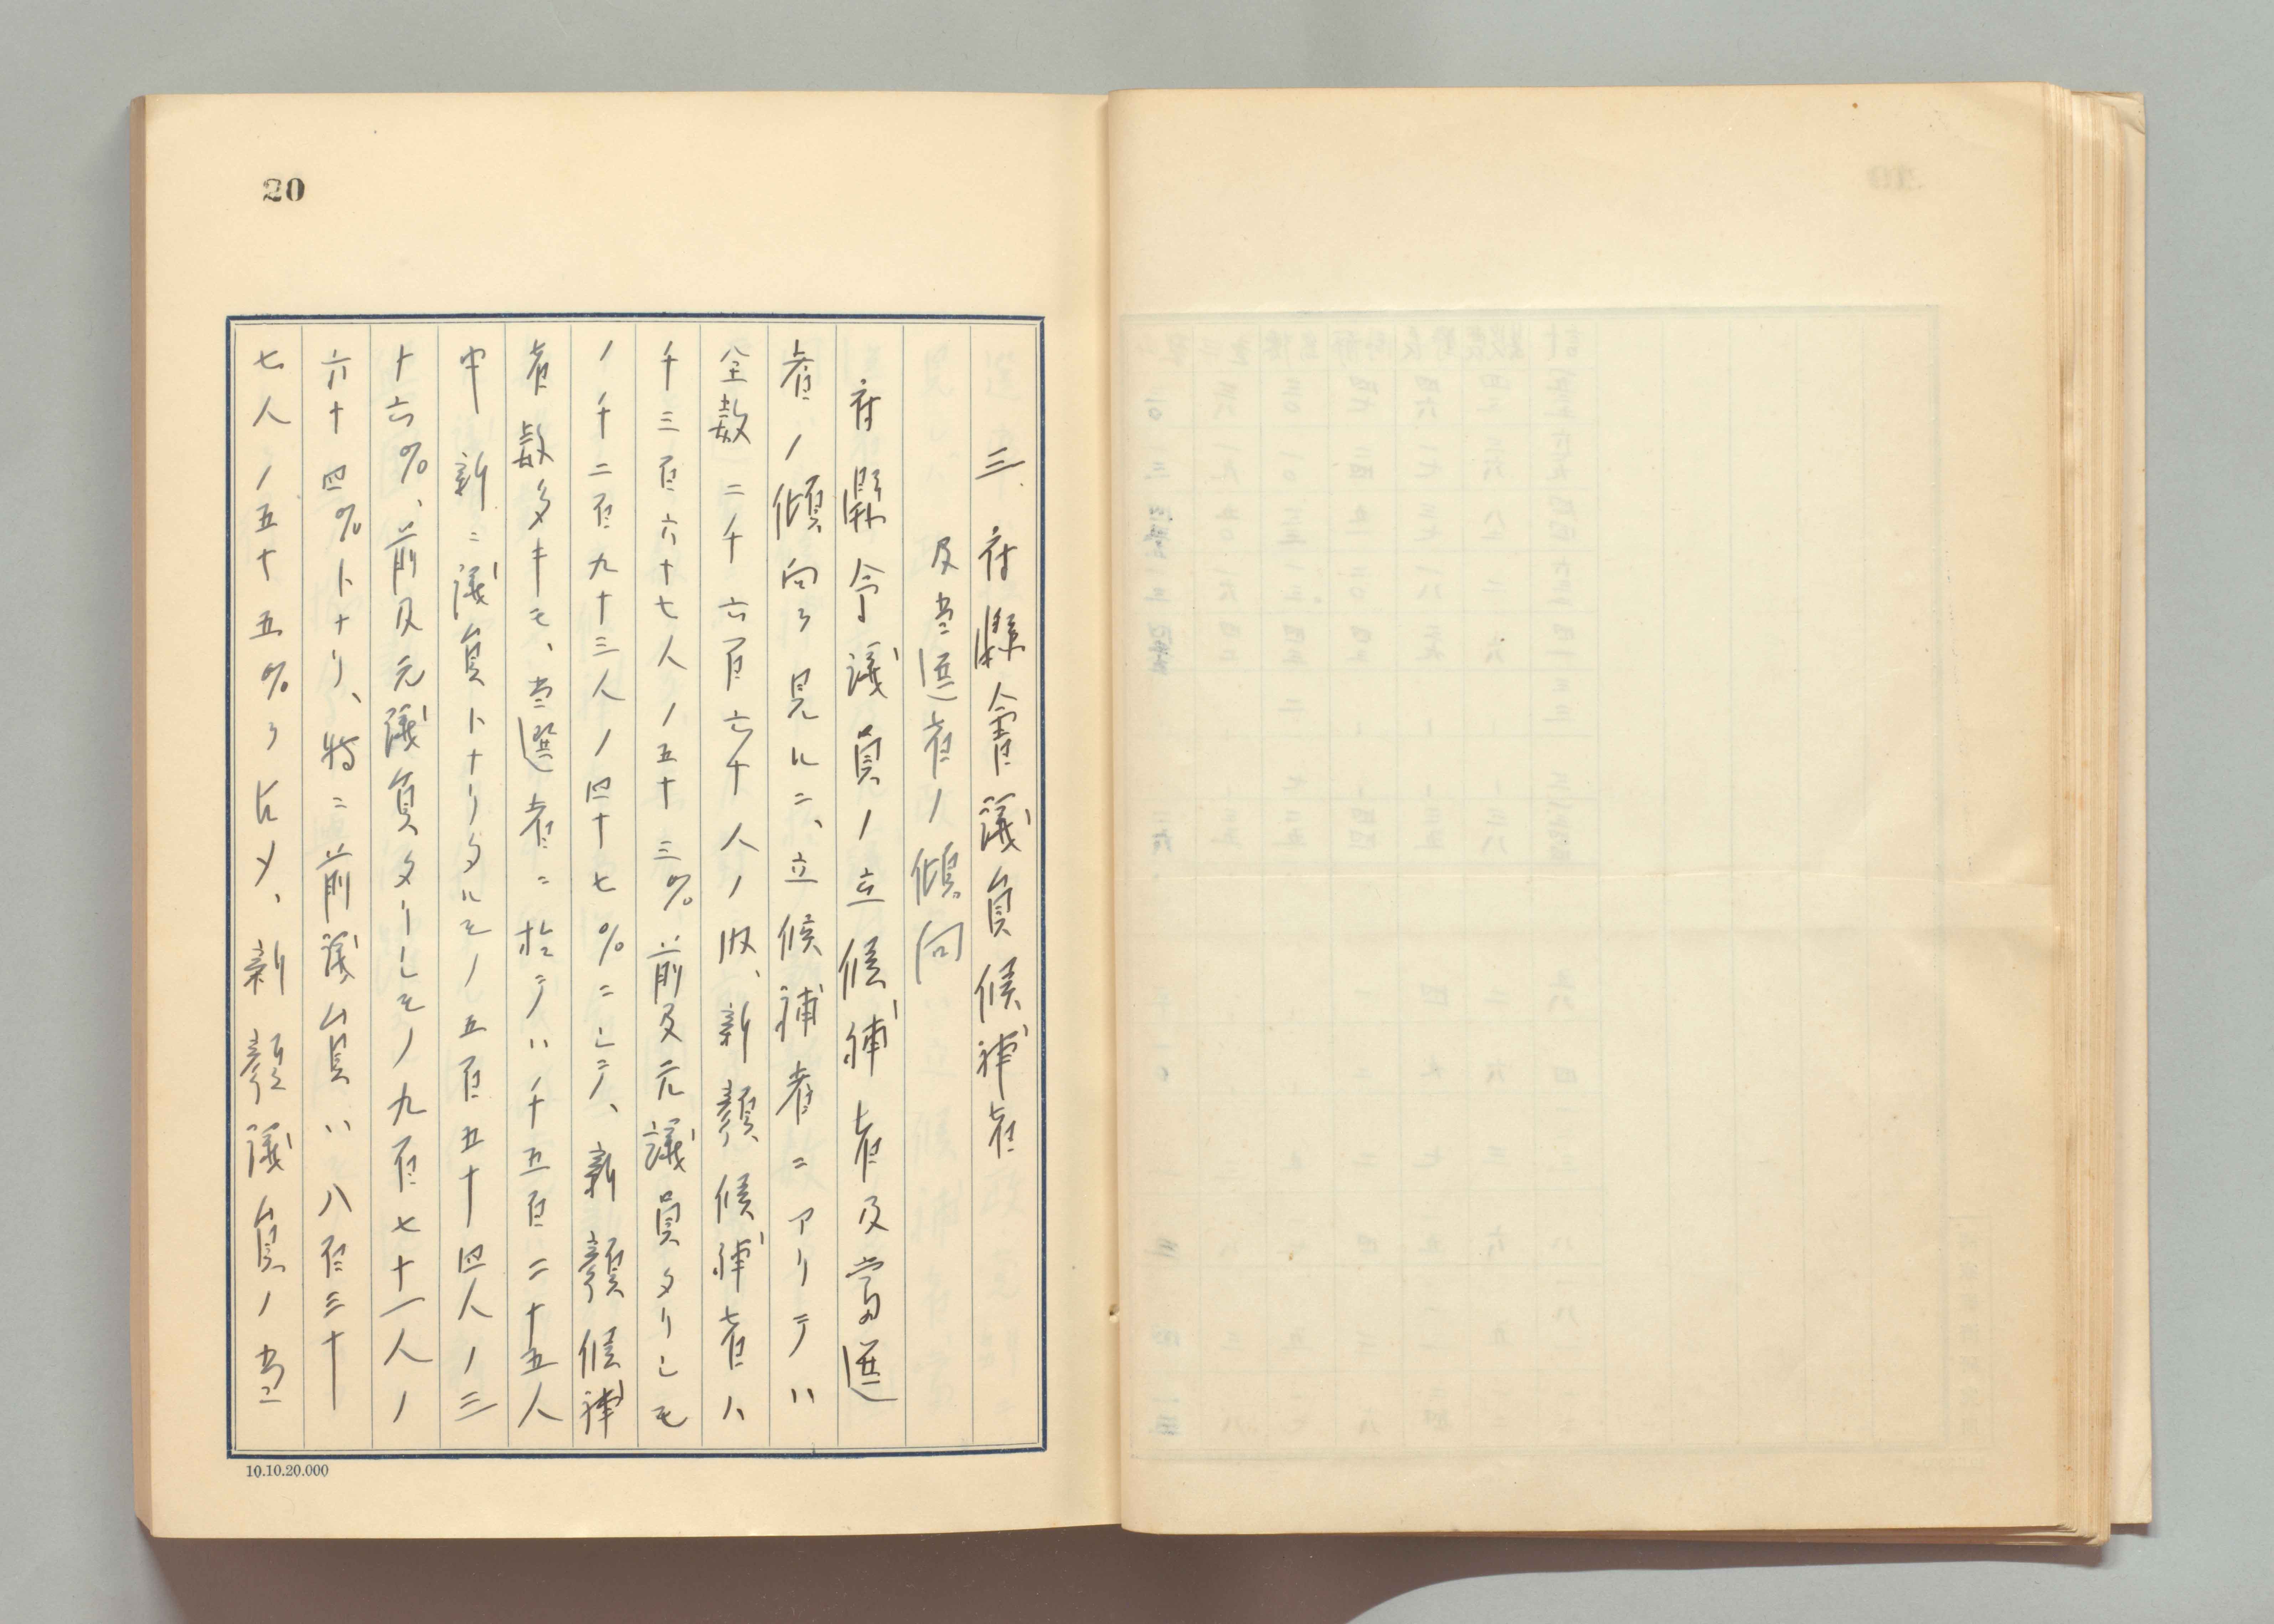 20
三、府縣會議員候補者
及当選者ノ傾向
府縣会議員ノ立候補者及當選
者ノ傾向ヲ見ルニ、立候補者ニアリテハ
全数二千六百六十人ノ、新顔候補者ハ
千三百六十七人ノ五十三%前及元議員タリシモ
ノ千二百九十三人ノ四十七%ニシテ、新顔候補
者数多キモ、当選者ニ於テハ千五百二十五人
中新ニ議員トナリタルモノ五百五十四人ノ三
十六%、前及元議員タリシモノ九百七十一人ノ
六十四%トナリ、特ニ前議員ハ八百三十
七人ノ五十五%ヲ占メ、新顔議員ノ当
10.10.20.000